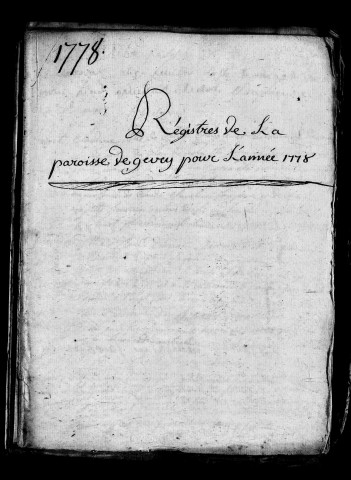 1778.
Régistres de La
paroisse de gevry pour L'année 1778